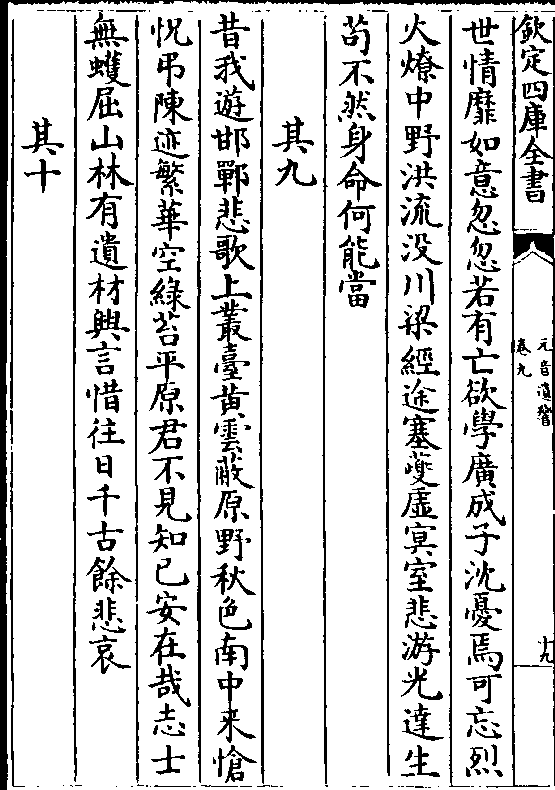 欽定四庫全書
元音遺響
卷九
十九
世情靡如意忽忽若有亡欲學廣成子沈憂焉可忘烈
火燎中野洪流没川梁經途塞夔虚冥室悲游光達生
苟不然身命何能當
其九
昔我遊邯鄲悲歌上叢臺黄雲蔽原野秋色南中来愴
怳弔陳迹繁華空綠苔平原君不見知已安在哉志士
無蠖屈山林有遺材興言惜往日千古餘悲哀
其十